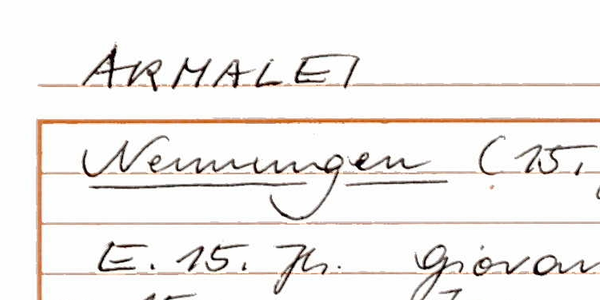 ARMALEI
Nennungen (15.
E. 15. Jh. Giovan
15